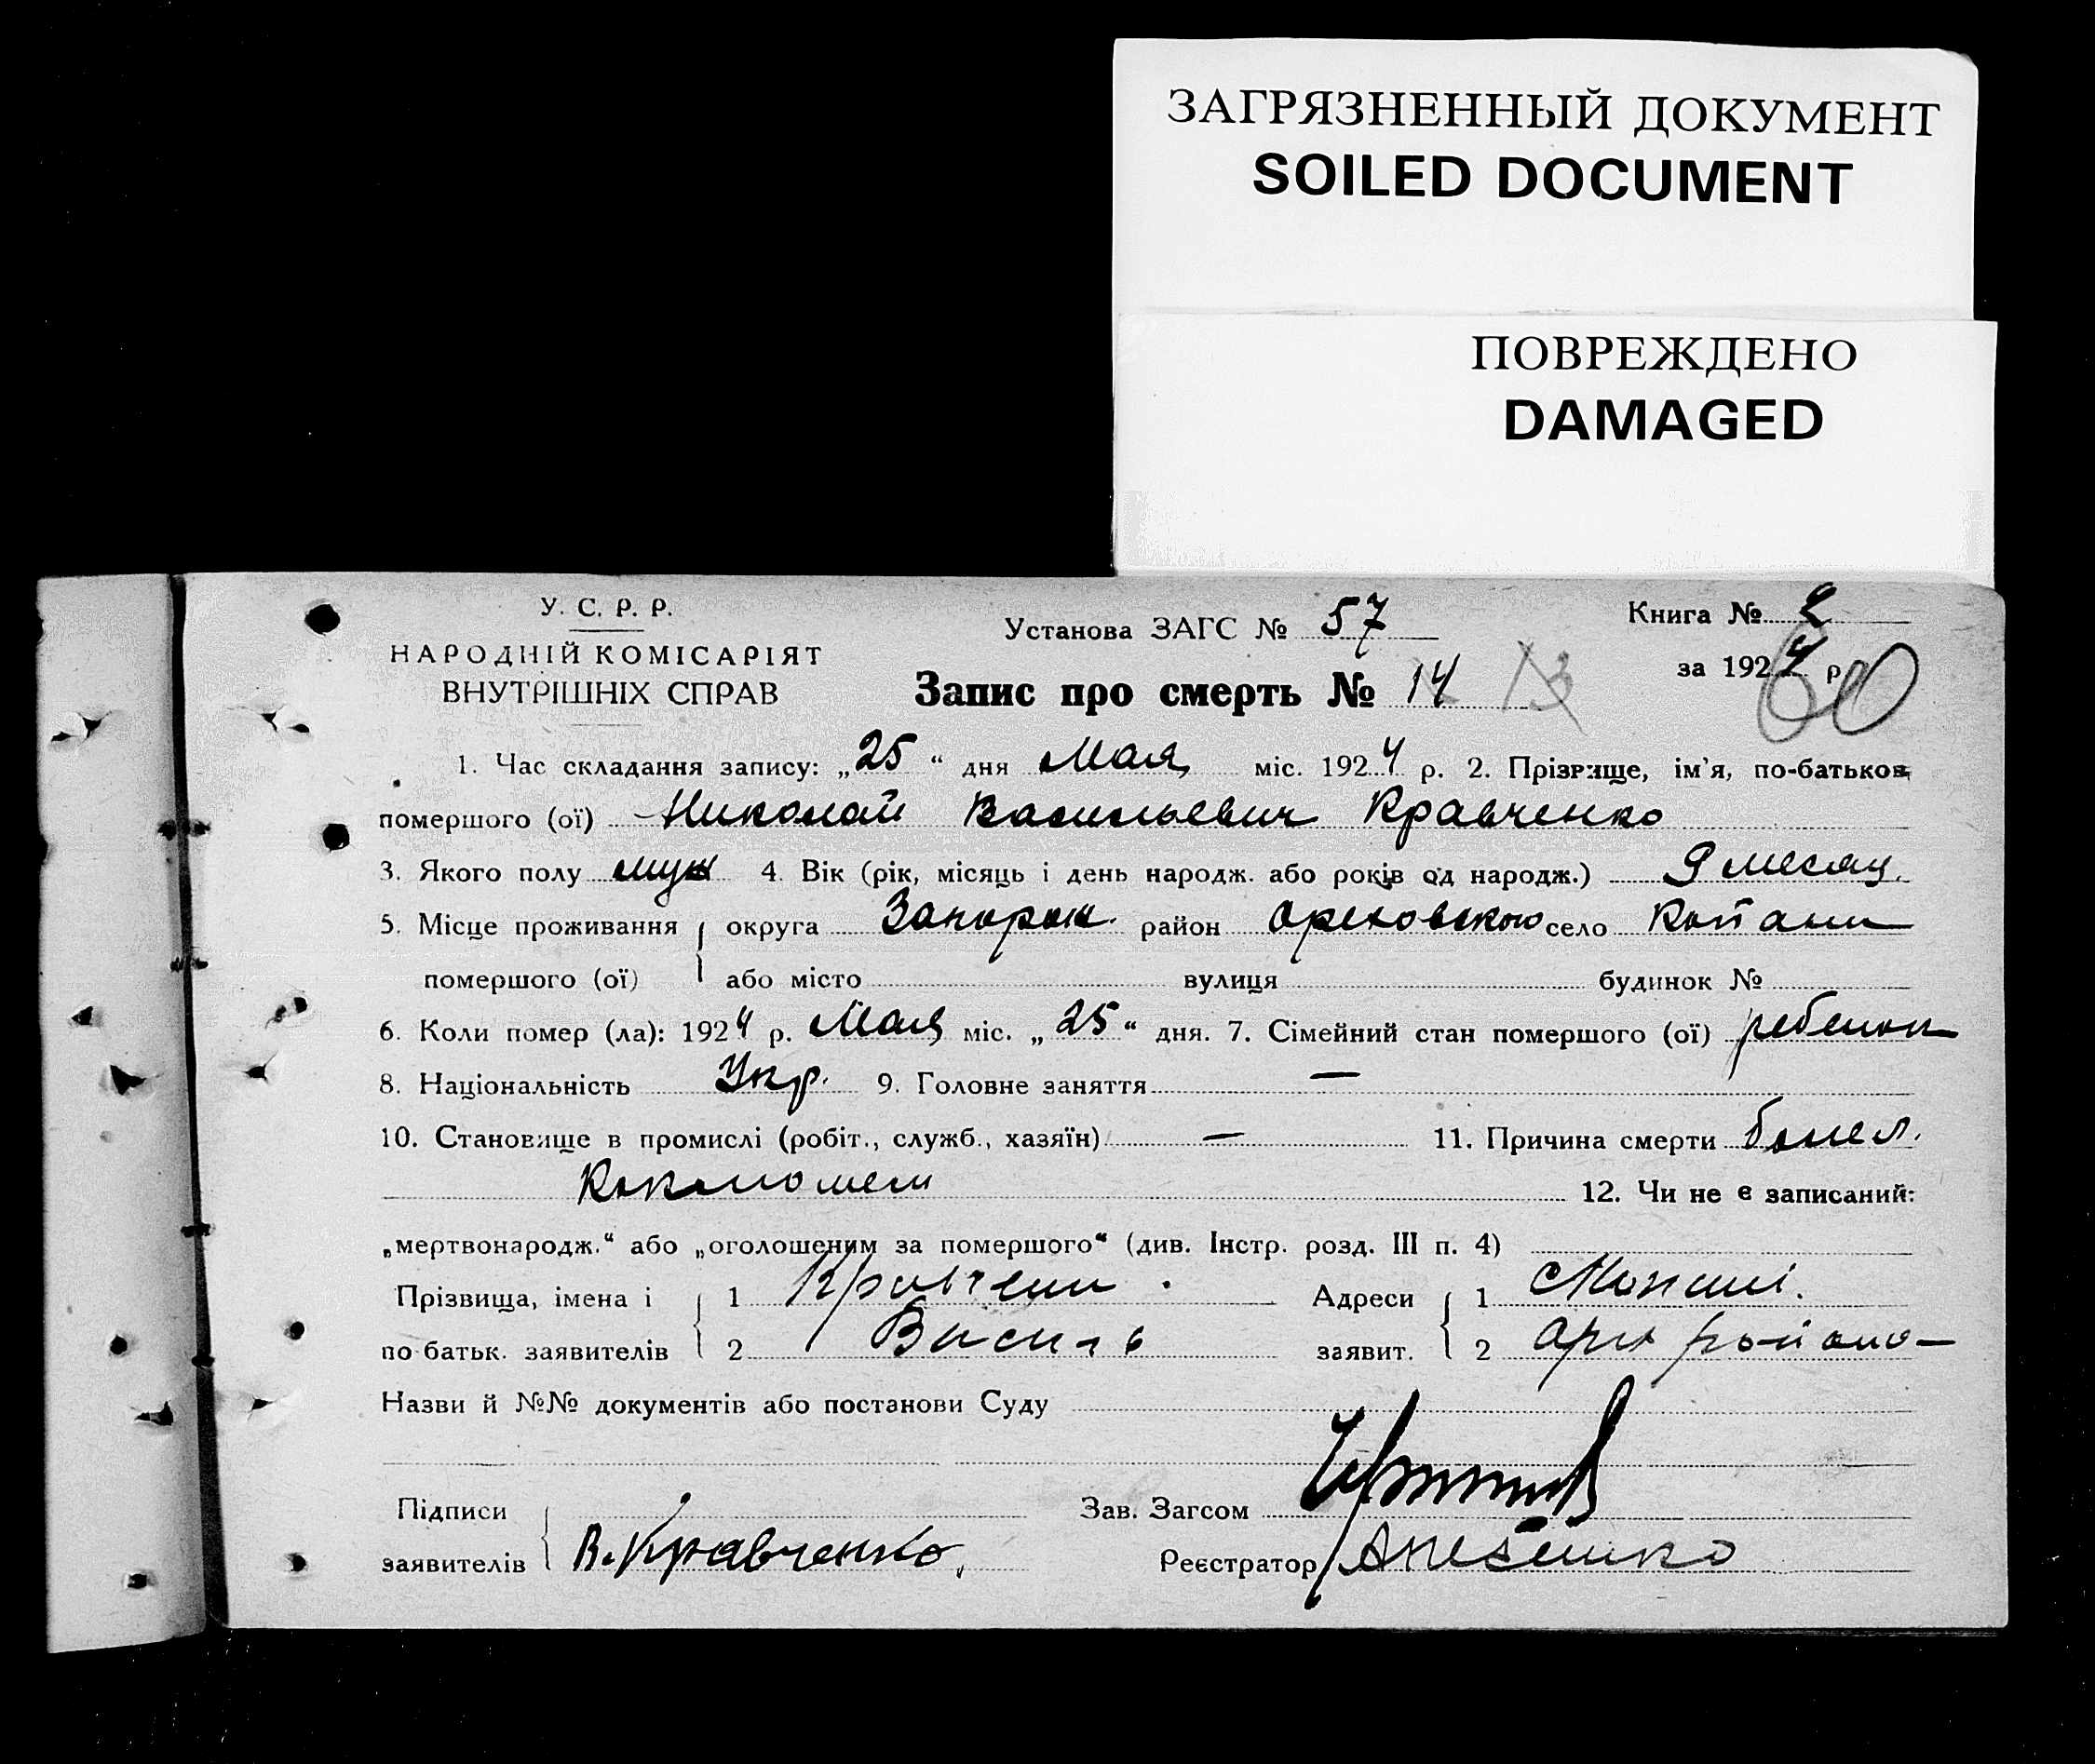 ЗАГРЯЗНЕННЫЙ ДОКУМЕНТ
SOILED DOCUMENT
ПОВРЕЖДЕНО
DAMAGED
У. С. Р. Р.
НАРОДНІЙ КОМІСАРІЯТ
ВНУТРІШНІХ СПРАВ
Установа ЗАГС № 57
Запис про смерть № 14 13
Книга № 2
за 1924 р. 60
1. Час складання запису: „25“ дня Мая міс. 1924 р. 2. Прізвище, ім'я, по-батьков,
помершого (ої) Николай Васильевич Кравченко
3. Якого полу муж 4. Вік (рік, місяць і день народж. або років од народж.) 9 месяц.
5. Місце проживання округа Запорож. район Ореховского село Копани
помершого (ої) або місто вулиця будинок №
6. Коли помер (ла): 1924 р. Мая міс. „25“ дня. 7. Сімейний стан помершого (ої) ребенок
8. Національність Укр. 9. Головне заняття —
10. Становище в промислі (робіт., служб., хазяїн) — 11. Причина смерти болел.
12. Чи не є записаний:
„мертвонародж.“ або „оголошеним за помершого“ (див. Інстр. розд. III п. 4)
Прізвища, імена і 1 Адреси 1
по батьк. заявителів 2 Василь заявит. 2
Назви й №№ документів або постанови Суду
Підписи Зав. Загсом
заявителів В. Кравченко, Реєстратор